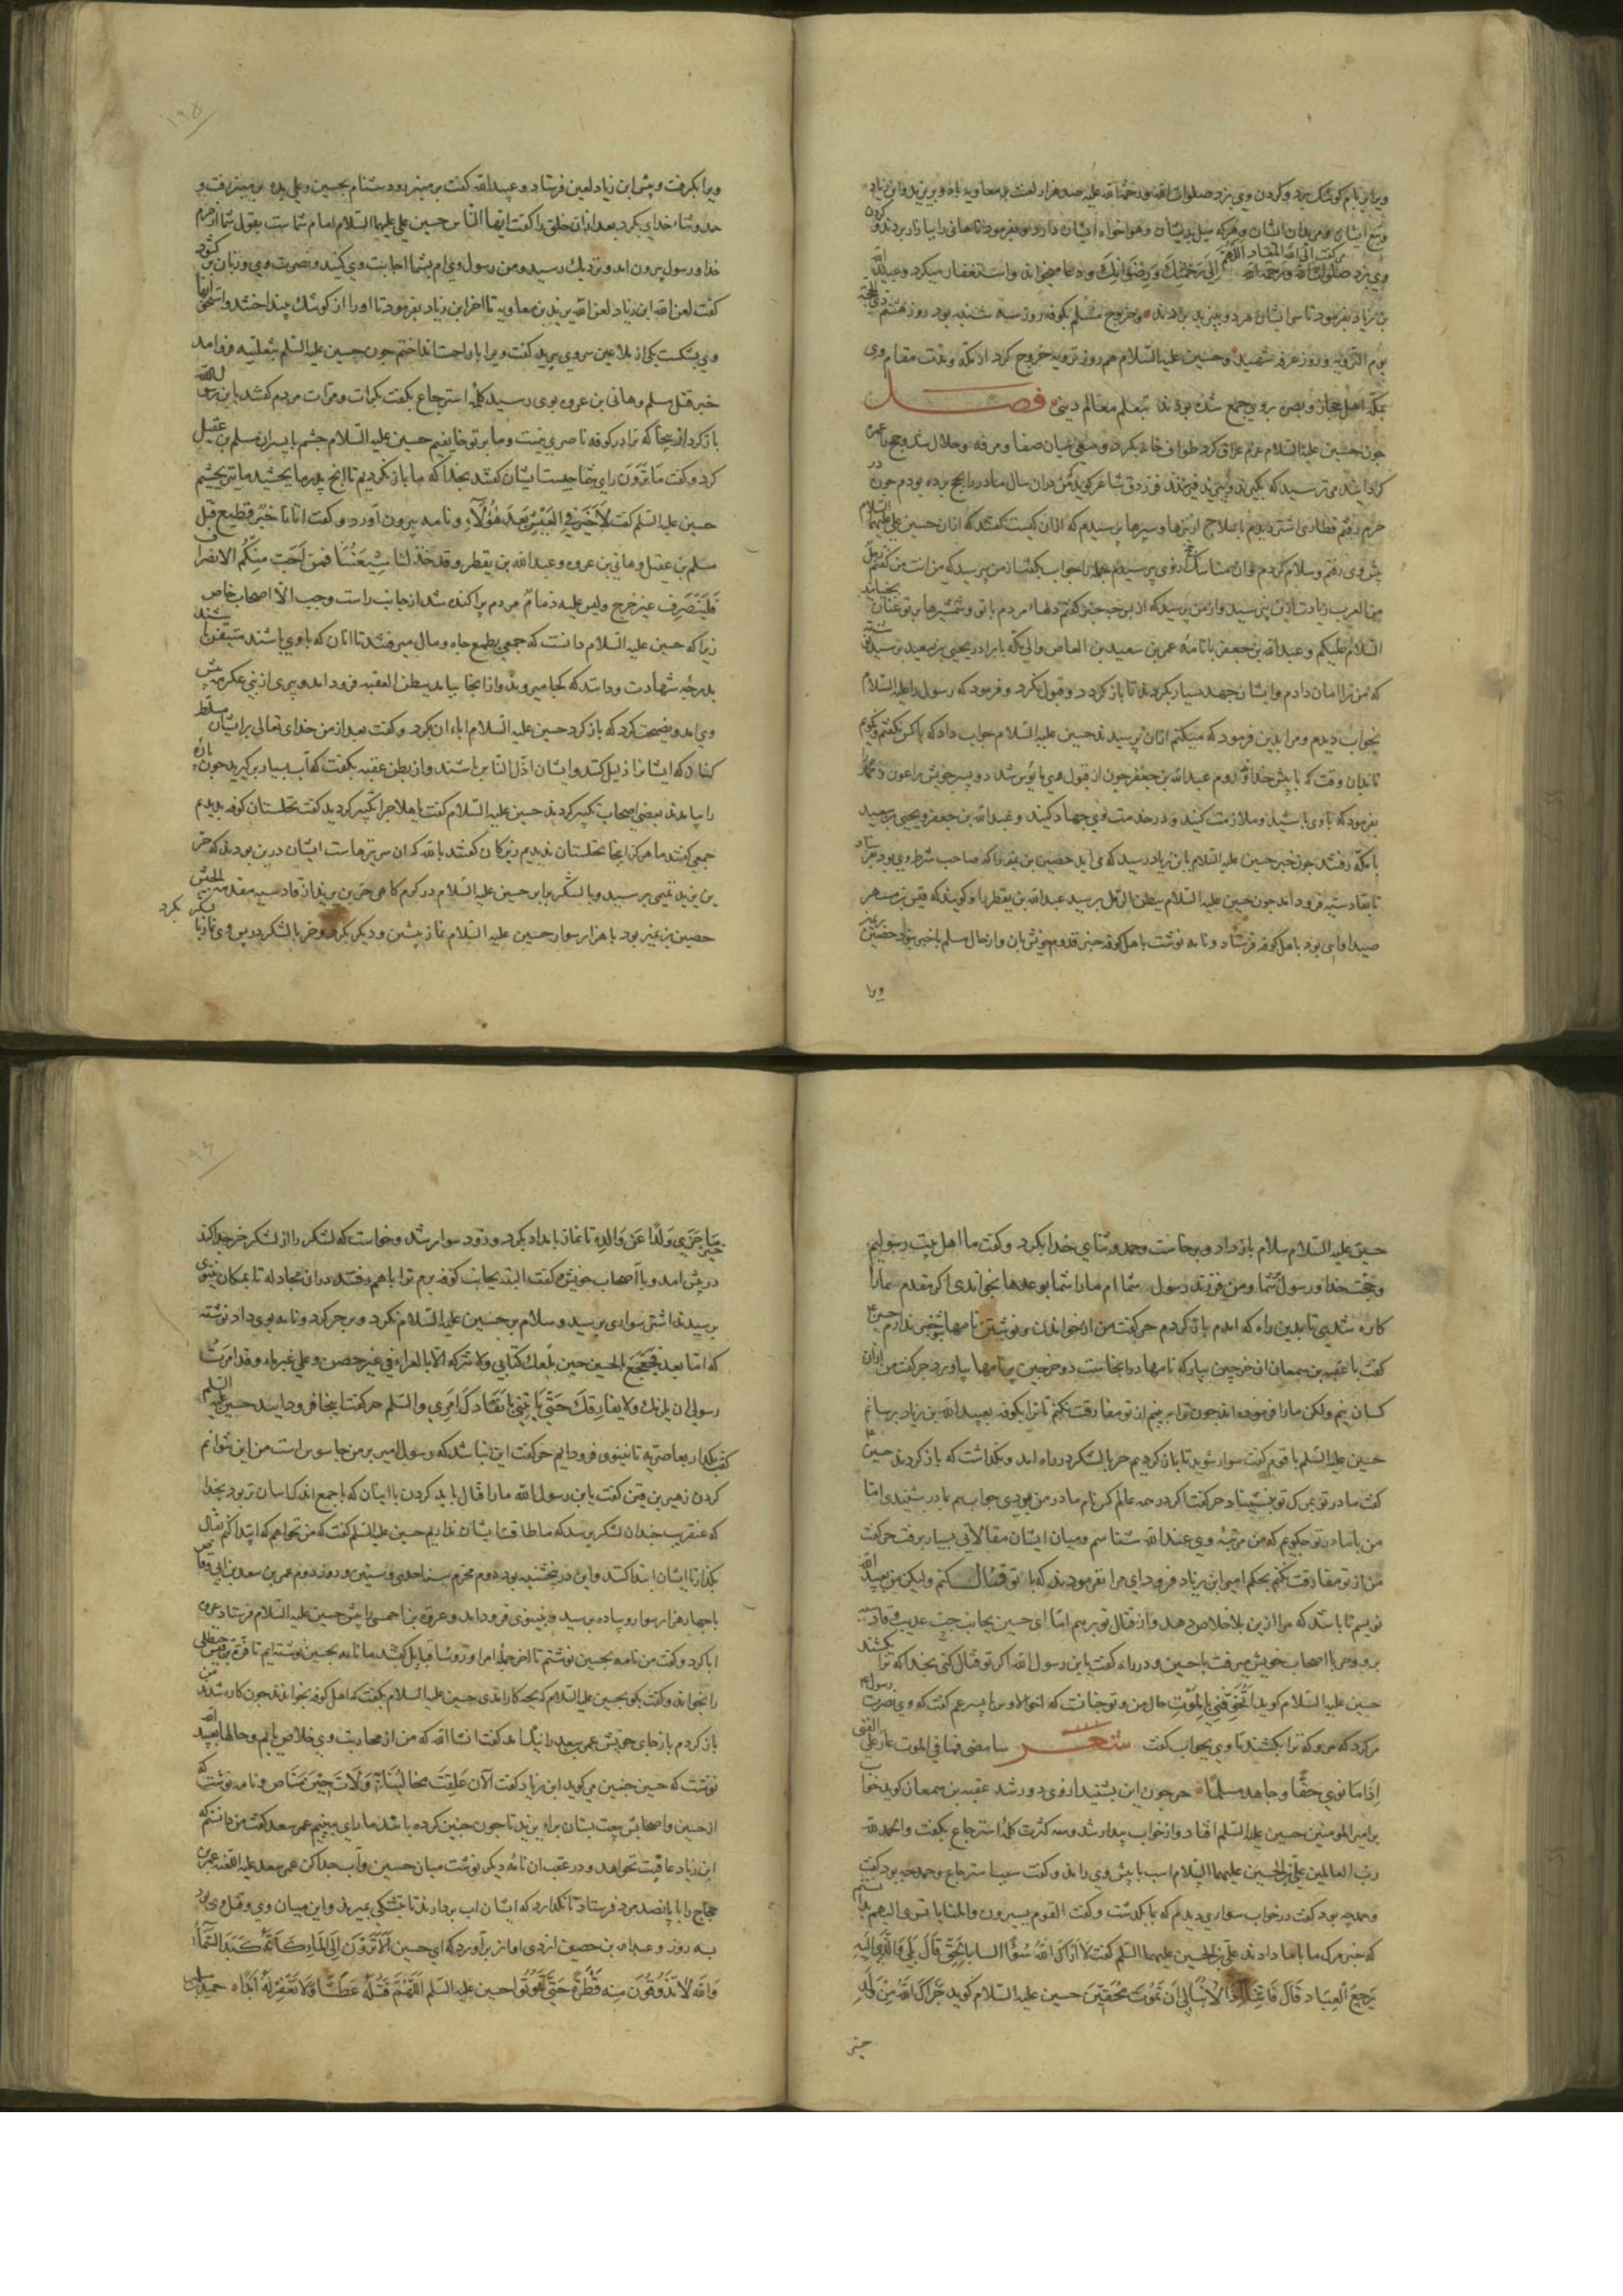 ویرا بر بام کوشک برد و کردن وی بزد صلوات الله و رحمة الله علیه صد هزار لعنت بر معاویه باد و بر یزید و ابن زیاد
وی بزد صلوات الله و رحمة الله الی رحمتک و رضوانک و دعا میخواند و استغفار میکرد و عبید الله
بن زیاد بفرمود تا سر ایشان هر دو پیش یزید بردند و خروج مسلم بکوفه روز سه شنبه بود روز هشتم ذی الحجة
یوم الترویه و روز عرفه شهید و حسین علیه السلام هم روز ترویه خروج کرد از مکه و بدت مقام وی
بمکه اهل حجاز و بصره بروی جمع شده بودند بتعلم معالم دینی فصل
جون حسین علیه السلام عزم عراق کرد طواف خانه بکرد و سعی میان صفا و مروه و حلال شد و حج با عمره
کرد
حرم رفتم قطاری اشتر دیدم با سلاح
السلام علیکم و عبدالله بن جعفر با نامه عمرو بن سعید بن العاص والی مکه با برادر یحیی بن سعید برسید
که من ترا امان دادم و ایشان جهد بسیار بکردند تا باز کردد و قبول نکرد و فرمود که رسول را علیه السلام
بخواب دیدم و مرا بدین فرمود که من میکنم ازان پرسیدند حسین علیه السلام جواب داد که با کس نکفتم و نکویم
تا بدان وقت که با پیش خدا روم عبدالله بن جعفر جون از قول وی مایوس شد دو پسر خویش را عون و محمد را
بفرمود که با وی باشید و ملازمت کنید و در خدمت وی جهاد کنید و عبدالله بن جعفر و یحیی بن سعید
با مکه رفتند جون خبر حسین علیه السلام بابن زیاد رسید که می اید حصین بن نمیر را که صاحب شرط وی بود بفرستاد
تا بقادسیه فرود امد جون حسین علیه السلام ببطن الرمل برسید عبدالله بن یقطر را و کویند که قیس بن مسهر
صیداوی بود باهل کوفه فرستاد و نامه نوشت باهل کوفه خبر قدوم خویش بان و از حال مسلم با خبر نبود حصین بن نمیر
ویرا
۱۹۵
ویرا بکرفت و پیش ابن زیاد لعین فرستاد و عبیدالله کفت بر منبر رو و دشنام بحسین و علی بده بر منبر رفت و
حمد و ثناء خدای بکرد بعد ازان خلق را کفت ایها الناس حسین علی علیهما السلام امام شماست بقول شما از حرم
خدا و رسول بیرون امد و نزدیک رسید و من رسول وی ام بشما اجابت وی کنید و نصرت وی و زبان برکشود
کفت لعن الله ابن زیاد لعن الله یزید بن معاویه تا اخر ابن زیاد بفرمود تا او را از کوشک بینداختند و استخوانها
وی بشکست یکی از ملاعین سر وی ببرید کفت ویرا با راحت انداختم جون حسین علیه السلم بثعلبیه فرو امد
خبر قتل مسلم و هانی بن عروه بوی رسید کلمه استرجاع بکفت بکرات و مرات مردم کفتند یابن رسول الله
باز کرد از ینجا که ترا در کوفه ناصری نیست و ما بر تو خایفیم حسین علیه السلام جشم با پسران مسلم بن عقیل
کرد و کفت ما ترون رای شما جیست ایشان کفتند بخدا که ما باز نکردیم تا انج پدر ما بجشید ما نیز بجشیم
حسین علیه السلم کفت لا خیر فی العیش بعد هؤلاء و نامه بیرون آورد و کفت اتانا خبر فظیع قتل
مسلم بن عقیل و هانی بن عروه و عبدالله بن یقطر و قد خذلنا شیعتنا فمن احب منکم الانصراف
فلینصرف غیر حرج ولیس علیه ذمام مردم پراکنده شد از جانب راست و جب الا اصحاب خاص
زیرا که حسین علیه السلام دانست که جمعی بطمع جاه و مال میرفتند تا انان که با وی باشند متیقن باشند
بدرجه شهادت و دانند که کجا میروند و از انجا بیامد ببطن العقبه فرود امد و پیری از بنی عکرمه پیش
وی امد و نصیحت کرد که باز کرد حسین علیه السلام اباء ان بکرد و کفت بعد از من خدای تعالی بر ایشان مسلط
کناد که ایشانرا ذلیل کند و ایشان اذل الناس باشند و از بطن عقبه بکفت که آب بسیار برکیرید جون پاره
را بیامدند بعضی اصحاب تکبیر کردند حسین علیه السلام کفت یا هلا جرا تکبیر کردید کفت نخلستان کوفه بدیدیم
جمعی کفتند ما هرکز اینجا نخلستان ندیدیم دیکران کفتند بالله که ان سر نیزهاست ایشان درین بودند که حر
بن یزید تمیمی برسید و با لشکر برابر حسین علیه السلام در کرم کاهی حر بن یزید از قادسیه مقدمه الجیش
حصین بن نمیر بود با هزار سوار حسین علیه السلام نماز پیشین و دیکر بکرد و حر با لشکر در پس وی نماز با لشکر بکرد
حسین علیه السلام سلام باز داد و برخاست و حمد و ثنای خدا بکرد و کفت ما اهل بیت رسولیم
و حجت خدا و رسول شما و من فرزند رسول شما ام مارا شما بوعدها بخواندی اکر مقدم مارا
کاره شدیی تا بدین راه که امدم باز کردم حر کفت من از خواندن و نوشتن نامها خبر ندارم حسین
کفت با عقبه بن سمعان ان خرجین بیار که نامها در انجاست دو خرجین پر نامها بیاورد حر کفت من ازان
کسان نیم ولکن مارا فرموده اند جون ترا به بینم از تو مفارقت نکنم تا ترا بکوفه بعبیدالله بن زیاد برسانم
حسین علیه السلم با قوم کفت سوار شوید تا باز کردیم حر با لشکر در راه امد و نکذاشت که باز کردند حسین
کفت مادر تو بمرک تو بنشیناد حر کفت اکر در همه عالم کس نام مادر من بردی جواب هم بمادر شنیدی اما
من با مادر تو جکویم که من مرتبه وی عند الله شناسم و میان ایشان مقالاتی بسیار برفت حر کفت
من از تو مفارقت نکنم بحکم امیر ابن زیاد فرود ای مرا نفرمودند که با تو قتال کنم ولیکن من بعبید الله
نویسم تا باشد که مرا از ین بلا خلاص دهد و از قتال تو برهم اما ای حسین بجانب جب عذیب و قادسیه
برو و حر با اصحاب خویش میرفت با حسین و در راه کفت یابن رسول الله اکر تو قتال کنی بخدا که ترا بکشند
حسین علیه السلام کوید اتخوفنی بالموت حال من و تو جنانست که
مر کرد که مرو که ترا بکشند تا وی بجواب کفت شعر سامضی فما فی الموت عار علی الفتی
اذا ما نوی حقا و جاهد مسلما حر جون این بشنید از وی دور شد عقبه بن سمعان کوید خواب
بر امیر المومنین حسین علیه السلم افتاد و از خواب بیدار شد و سه کرت کلمه استرجاع بکفت والحمد لله
رب العالمین علی بن الحسین علیهما السلام اسب با پیش وی راند و کفت سبب استرجاع و حمد جه بود کفت
و حمد جه بود کفت در خواب سواری دیدم که بما بکذشت و کفت القوم یسیرون والمنایا تسری الیهم
که خبر مرک ما با ما دادند علی بن الحسین علیهما السلم کفت لا اراک الله سوءا السنا بالحق قال بلی والذی الیه
یرجع العباد قال فاننا اذا لا نبالی ان نموت محقین حسین علیه السلام کوید جزاک الله من ولد
خیر
۱۹۶
خیر ما جزی ولدا عن والده تا نماز بامداد بکرد و زود سوار شد و خواست که لشکر را از لشکر حر جدا کند
در پیش امد و با اصحاب خویش کفت البته بجانب کوفه برم ترا با هم رفتند دران مجادله تا بمکان نینوی
برسیدند اشتر سواری برسید و سلام بر حسین علیه السلام نکرد و بر حر کرد و نامه بوی داد نوشته
که اما بعد فجعجع بالحسین حین بلغک کتابی ولا تترکه الا بالعراء فی غیر حصن و علی غیر ماء وقد امرت
رسولی ان یلزمک ولا یفارقک حتی یاتینی بانفاذک امری والسلم حر کفت اینجا فرود ایید حسین علیه السلم
کفت بکذار تا نینوی فرود ایم حر کفت این نباشد که رسول امیر بر من جاسوس است من این نتوانم
کردن زهیر بن قین کفت یابن رسول الله مارا قتال باید کردن با اینان که با جمع اندک اسان تر بود بخدا
که عنقریب جندان لشکر برسد که ما طاقت ایشان نداریم حسین علیه السلم کفت که من نخواهم که ابتدا کنم بقتال
بکذار تا ایشان ابتدا کنند و این در پنجشنبه بود دوم محرم سنه احدی و ستین و روز دوم عمر بن سعد بن ابی وقاص
با جهار هزار سوار و پیاده برسید و بنینوی فرود امد و عروة بن احمسی را پیش حسین علیه السلام فرستاد عروه
ابا کرد و کفت من نامه بحسین نوشتم
را بخواند و کفت بکو بحسین علیه السلام که بجه کار امدی حسین علیه السلام بکفت که اهل کوفه بخواندند جون کاره شدند من
باز کردم با جای خویش عمر سعد را نیک امد کفت انشاالله که من از محاربت وی خلاص یابم و حالها بعبید الله
نوشت که حسین جنین می کوید ابن زیاد کفت الآن علقت مخالبنا به ولات حین مناص و نامه نوشت که
از حسین و اصحابش بیعت بستان برای یزید تا جون جنین کرده باشد ما رای ببینیم عمر سعد کفت من دانستم که
ابن زیاد عاقبت نخواهد و در عقب ان نامه دیکر نوشت میان حسین و آب جدا کن عمر سعد علیه اللعنه عمرو بن
حجاج را با پانصد مرد فرستاد تا نکذارد که ایشان اب بردارند تا بتشنکی بمیرند و این میان وی و قتل وی بود
بسه روز و عبدالله بن حصین ازدی اواز برآورد که ای حسین الا ترون الی الماء کانه کبد السماء
والله لا تذوقون منه قطرة حتی تموتوا حسین علیه السلم اللهم اقتله عطشا ولا تغفر له ابدا حمید بن مسلم